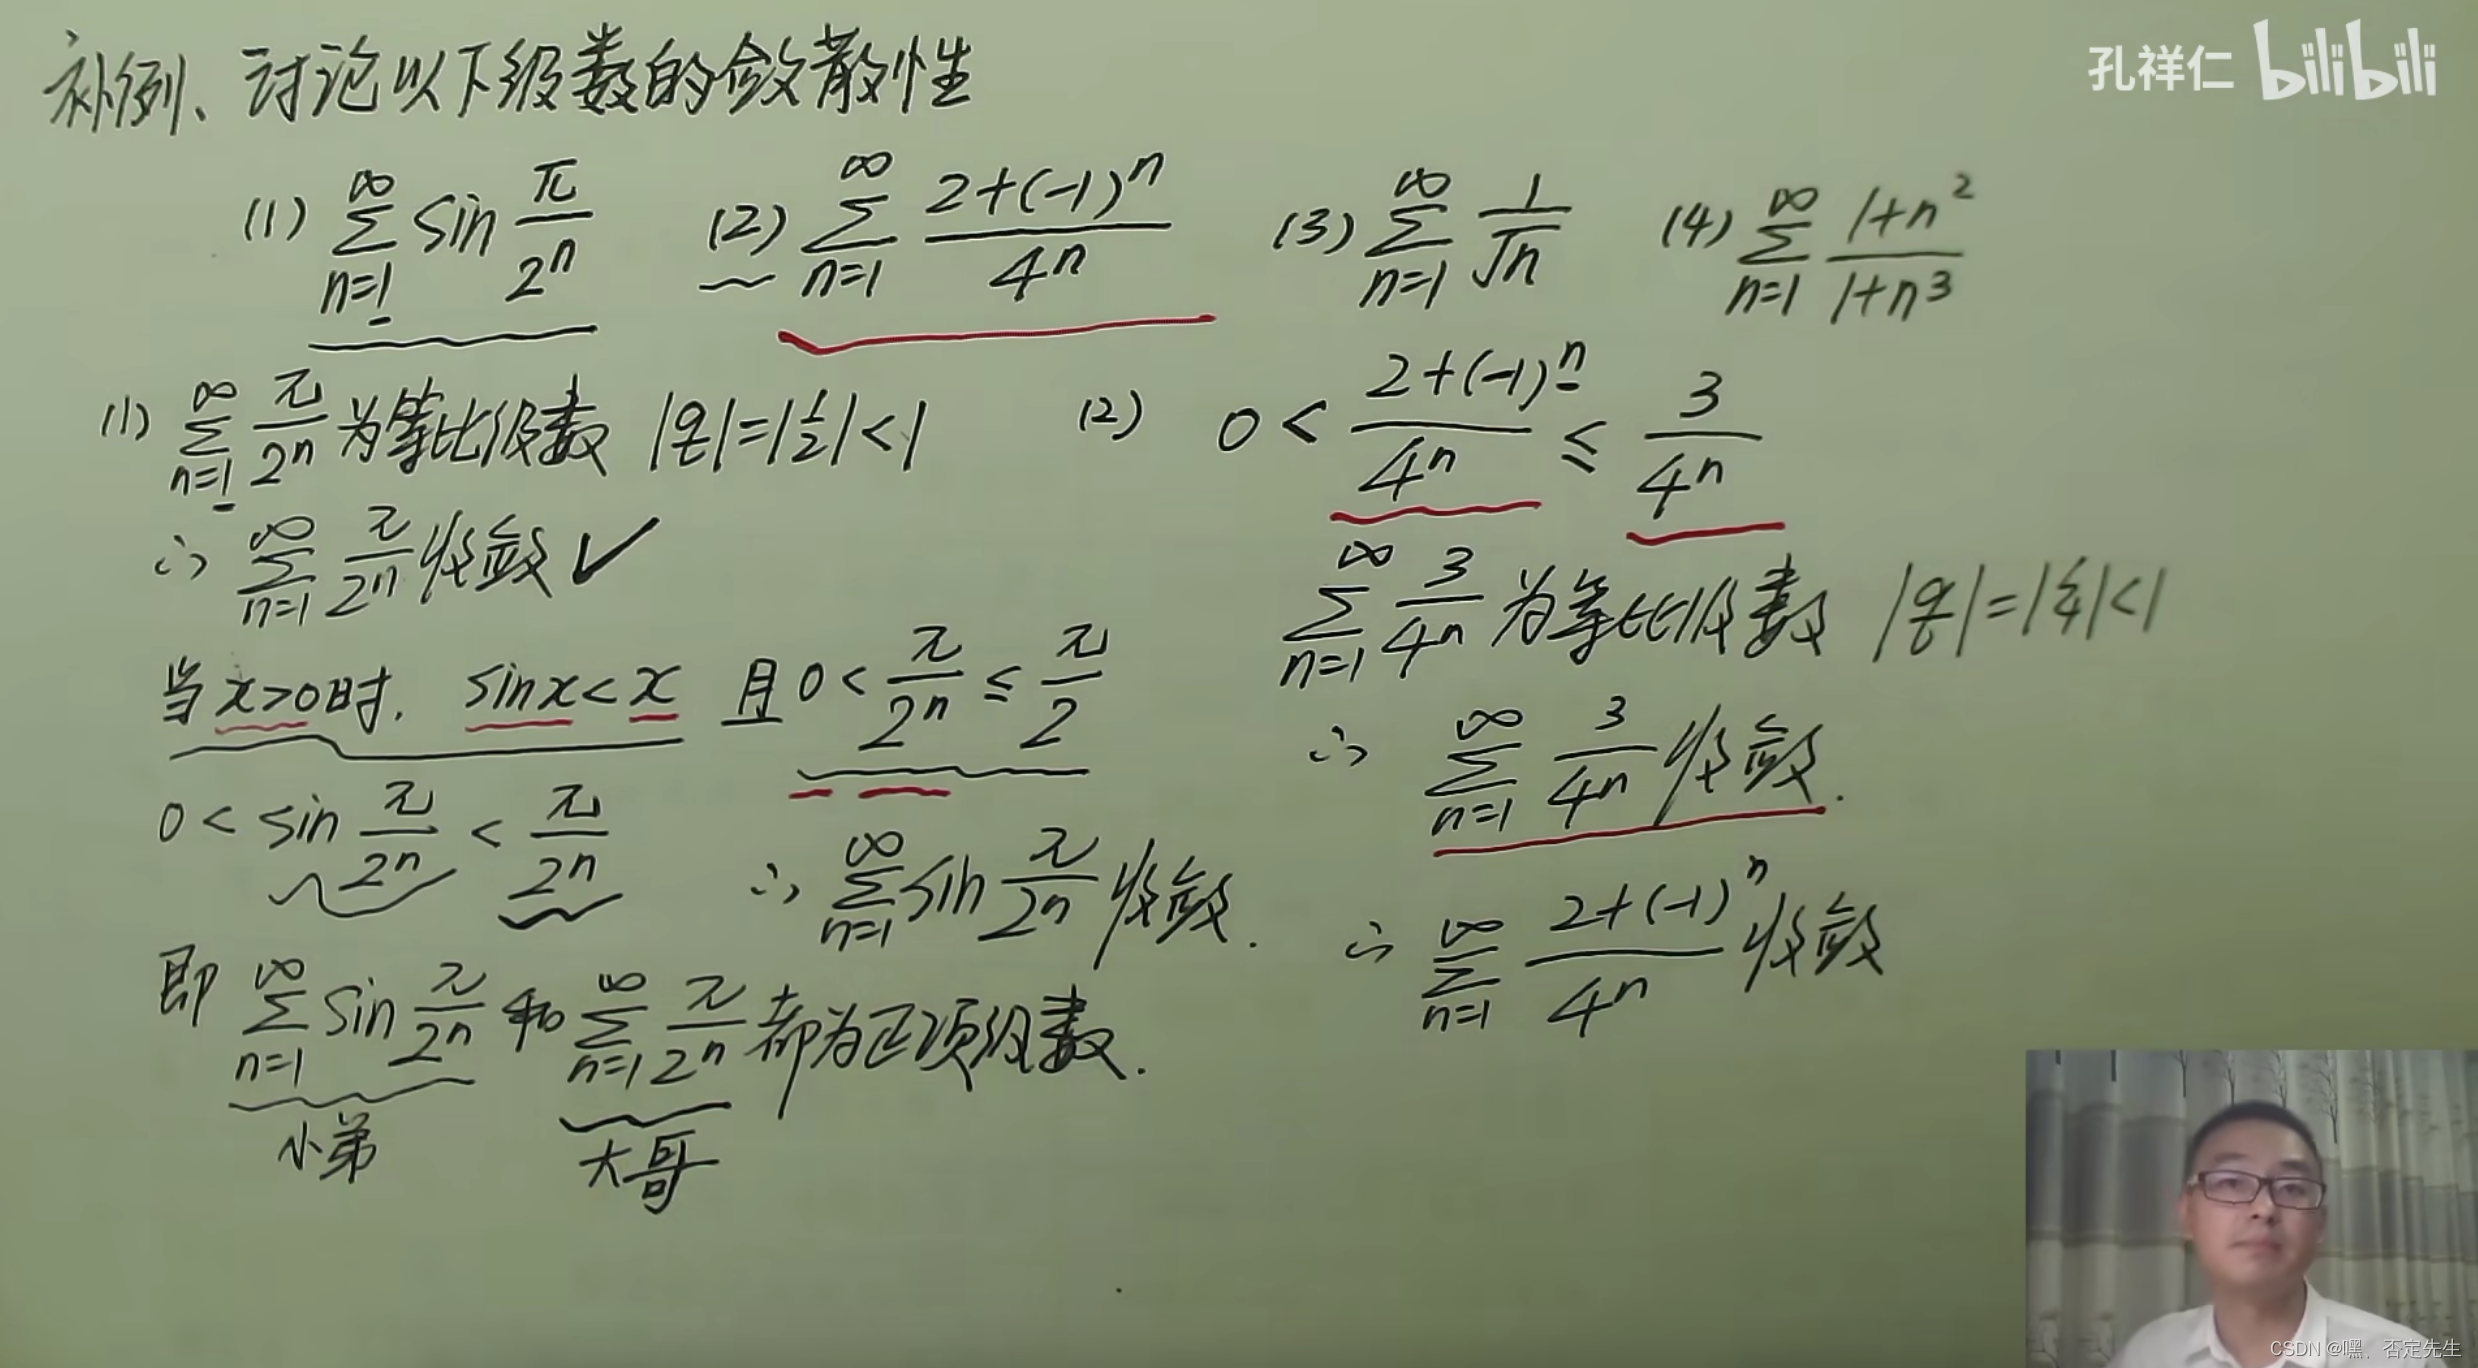 补例、讨论以下级数的敛散性
孔祥仁 bilibili
(1) ∑_{n=1}^{∞} sin π/2ⁿ (2) ∑_{n=1}^{∞} (2+(-1)ⁿ)/4ⁿ (3) ∑_{n=1}^{∞} 1/√n (4) ∑_{n=1}^{∞} (1+n²)/(1+n³)
(1) ∑_{n=1}^{∞} π/2ⁿ 为等比级数 |q|=|1/2|<1
∴ ∑_{n=1}^{∞} π/2ⁿ 收敛 ✓
当x>0时, sinx<x 且 0<π/2ⁿ≤π/2
0<sin π/2ⁿ<π/2ⁿ ∴ ∑_{n=1}^{∞} sin π/2ⁿ 收敛.
即 ∑_{n=1}^{∞} sin π/2ⁿ 和 ∑_{n=1}^{∞} π/2ⁿ 都为正项级数.
小弟 大哥
(2) 0<(2+(-1)ⁿ)/4ⁿ≤3/4ⁿ
∑_{n=1}^{∞} 3/4ⁿ 为等比级数 |q|=|1/4|<1
∴ ∑_{n=1}^{∞} 3/4ⁿ 收敛.
∴ ∑_{n=1}^{∞} (2+(-1)ⁿ)/4ⁿ 收敛
CSDN @嘿、否定先生